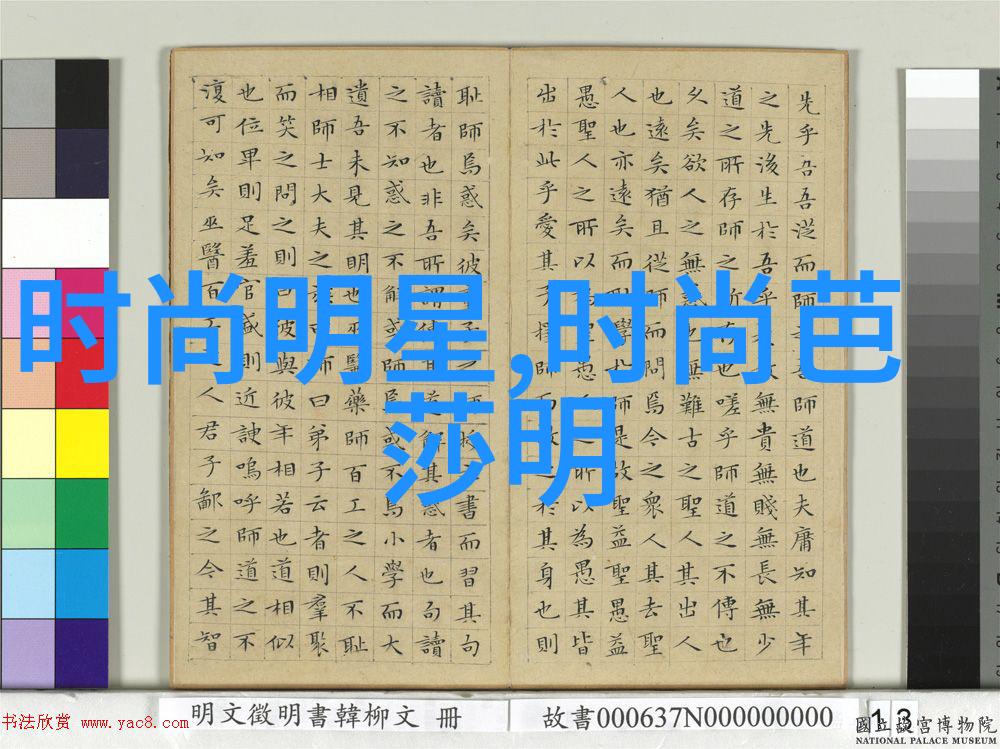 先乎吾吾從而師之吾師道也夫庸知其年
之先後生於吾乎是故無貴無賤無長無少
道之所存師之所存也嗟乎師道之不傳也
久矣欲人之無惑也無難古之聖人其出人
也遠矣猶且從師而問焉今之眾人其去聖
人也亦遠矣而恥學於師是故聖益聖愚益
愚聖人之所以為聖愚人之所以為愚其皆
出於此乎愛其子擇師而教之於其身也則
恥師焉惑矣彼童子之師授之書而習其句
讀者也非吾所謂傳其道解其惑者也句讀
之不知惑之不解或師焉或不焉小學而大
遺吾未見其明也巫醫藥師百工之人不恥
相師士大夫之族曰師曰弟子云者則羣聚
而笑之問之則曰彼與彼年相若也道相似
也位卑則足羞官盛則近諛嗚呼師道之不
復可知矣巫醫百工之人君子鄙之今其智
时尚明星,时尚芭
莎明
明文徵明書韓柳文 冊
故書000637N000000000
13
书法欣赏 www.yac8.com
國立故宮博物院
NATIONAL PALACE MUSEUM